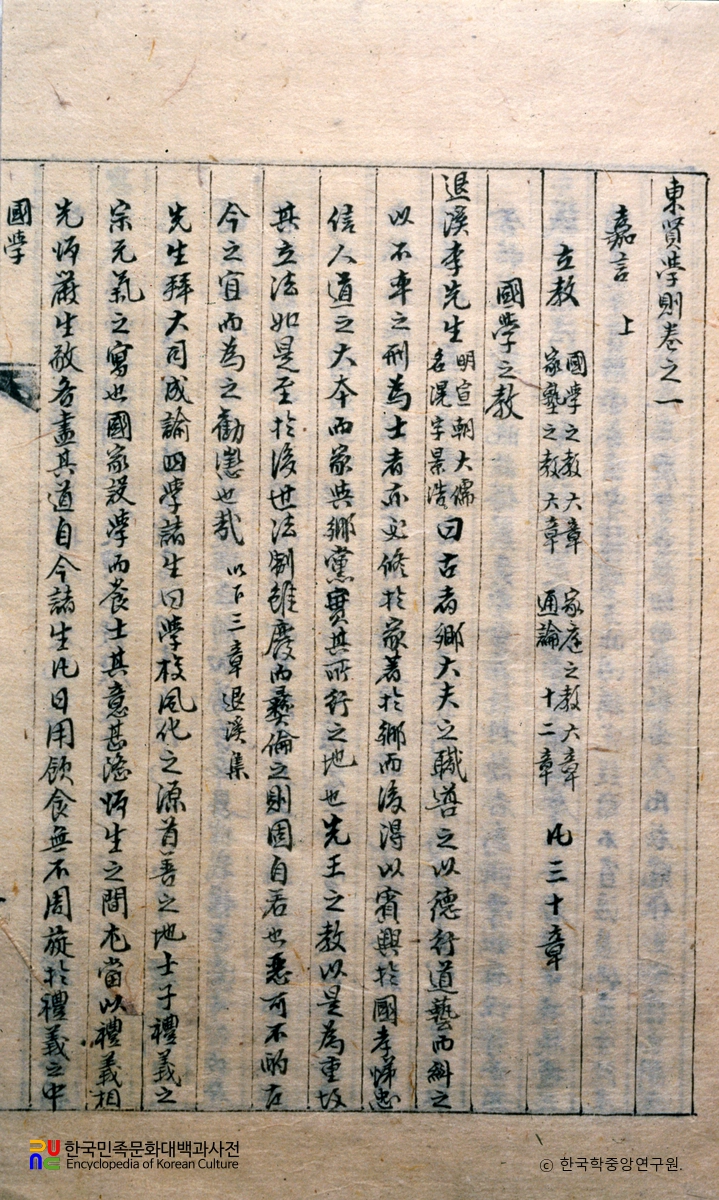 東賢學則卷之一
嘉言 上
立敎 國學之敎六章 家塾之敎六章 家庭之敎六章 通論十二章 凡三十章
國學之敎
退溪李先生 明宣朝大儒 名滉字景浩 曰古者鄕大夫之職導之以德行道藝而糾之
以不率之刑爲士者亦必修於家著於鄕而後得以賓興於國孝悌忠
信人道之大本而家與鄕黨實其所行之地也先王之敎以是爲重故
其立法如是至於後世法制雖廢而彛倫之則固自若也惡可不酌古
今之宜而爲之勸懲也哉 以下三章退溪集
先生拜大司成諭四學諸生曰學校風化之源首善之地士子禮義之
宗元氣之寓也國家設學而養士其意甚隆師生之間尤當以禮義相
先師嚴生敬各盡其道自今諸生凡日用飮食無不周旋於禮義之中
國學
한국민족문화대백과사전
Encyclopedia of Korean Culture
© 한국학중앙연구원.